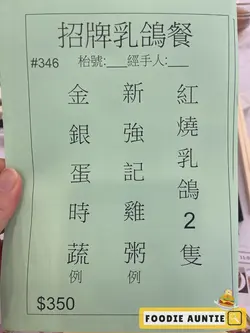 招牌乳鴿餐
#346 枱號:___經手人:___
紅燒乳鴿2隻
新強記雞粥例
金銀蛋時蔬例
$350
FOODIE AUNTIE